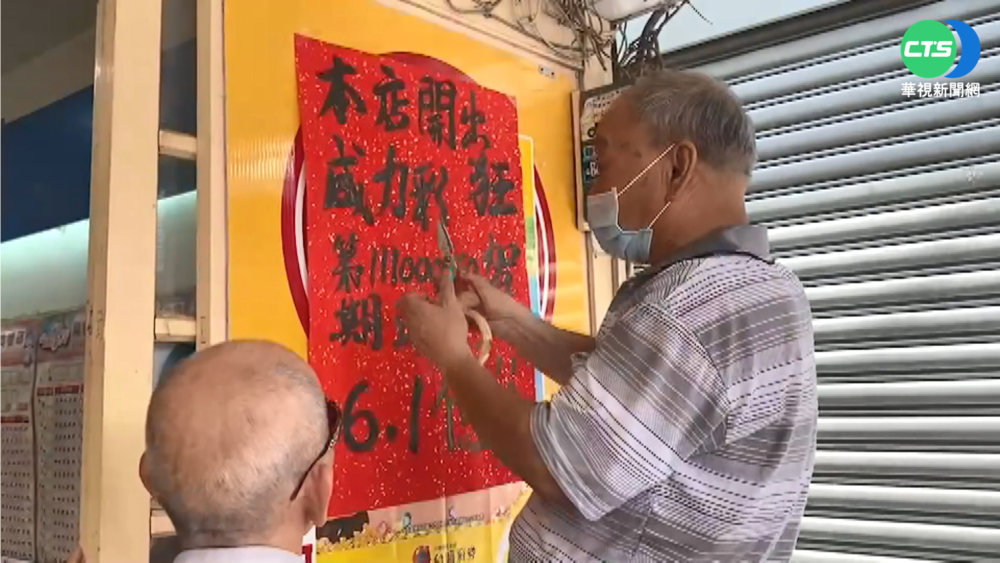 CTS
華視新聞網
本店開出
威力彩 狂
第111000 賀
期
6.1億